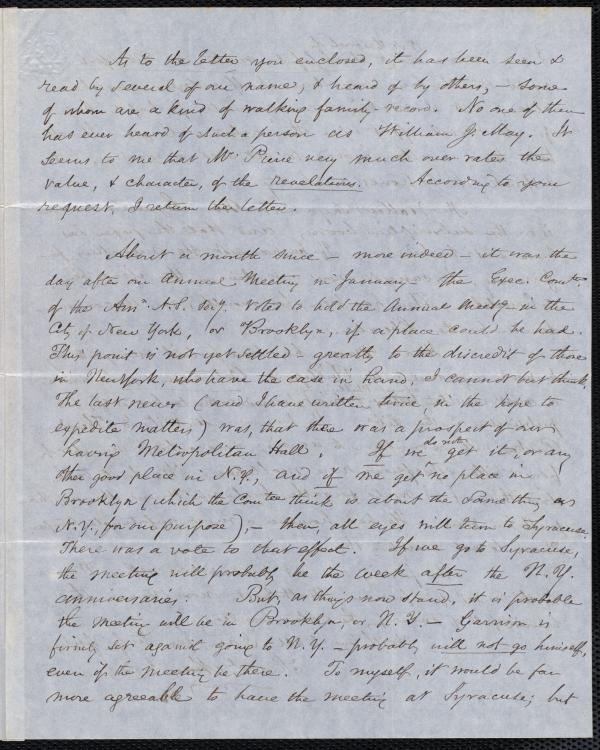 As to the letter you enclosed, it has been seen &
read by several of our name, & heard of by others, – some
of whom are a kind of walking family record. No one of them
has ever heard of such a person as William J. May. It
seems to me that Mr. Pierce very much over rates the
value, & character, of the revelations. According to your
request, I return the letter.
About a month since – more indeed – it was the
day after our Annual Meeting in January – the Exec. Comtee
of the Amn. A.S. Socy. voted to hold the Annual Meetg. in the
City of New York, or Brooklyn, if a place could be had.
This point is not yet settled – greatly to the discredit of those
in New York, who have the case in hand, I cannot but think.
The last news (and I have written twice, in the hope to
expedite matters) was, that there was a prospect of our
having Metropolitan Hall. If we do not get it, or any
other good place in N.Y., and if we get no place in
Brooklyn (which the Comtee think is about the same thing as
N.Y., for our purpose), – then, all eyes will turn to Syracuse.
There was a vote to that effect. If we go to Syracuse,
the meeting will probably be the week after the N.Y.
anniversaries. But, as things now stand, it is probable
the meeting will be in Brooklyn, or N.Y. – Garrison is
firmly set against going to N.Y. – probably will not go himself,
even if the meeting be there. To myself, it would be far
more agreeable to have the meeting at Syracuse; but